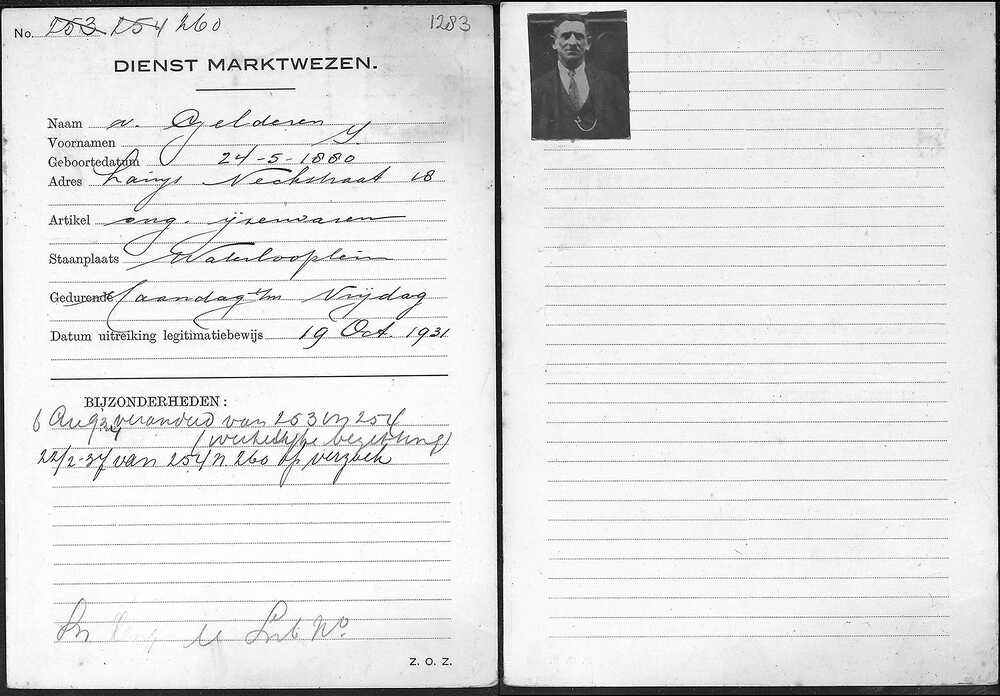 No. 253 254 260
1283
DIENST MARKTWEZEN.
Naam v. Gelderen
Voornamen Y.
Geboortedatum 24-5-1880
Adres Lange Neckstraat 18
Artikel ong. ijzerwaren
Staanplaats Waterlooplein
Gedurende Maandag t/m Vrijdag
Datum uitreiking legitimatiebewijs 19 Oct. 1931
BIJZONDERHEDEN:
6 Aug 34 veranderd van 253 in 254
(werkelijke bezetting)
22/2-37 van 254 n 260 op verzoek
No.
Z. O. Z.